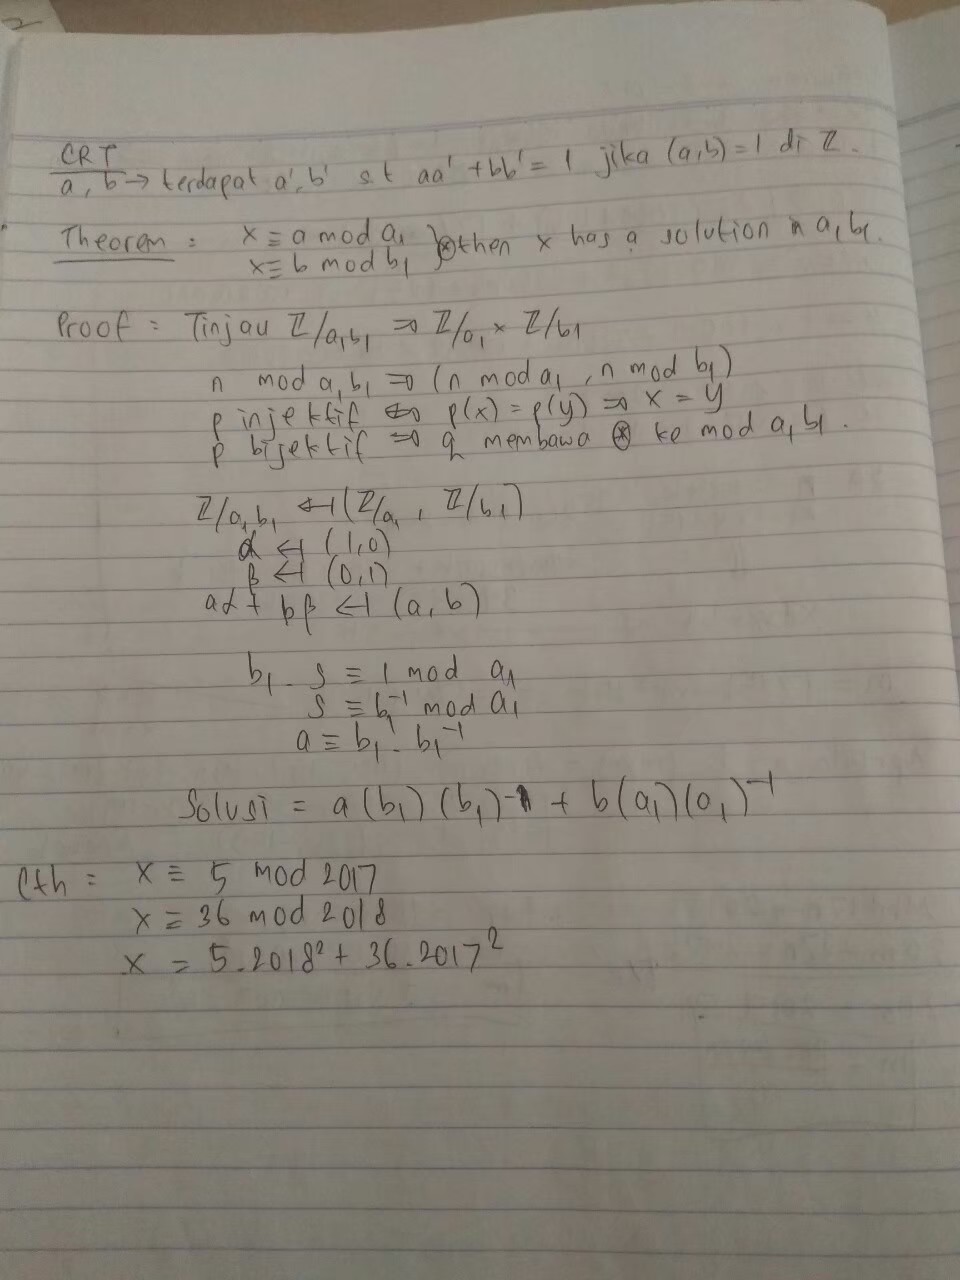 CRT
a, b → terdapat a', b' s.t aa' + bb' = 1 jika (a,b) = 1 di ℤ.
Theorem : x ≡ a mod a₁
x ≡ b mod b₁ } ⊛ then x has a solution in a₁b₁.
Proof = Tinjau ℤ/a₁b₁ ⇒ ℤ/a₁ × ℤ/b₁
n mod a₁b₁ ⇒ (n mod a₁, n mod b₁)
p injektif ⇔ p(x) = p(y) ⇒ x = y
p bijektif ⇒ q membawa ⊛ ke mod a₁b₁.
ℤ/a₁b₁ ↤ (ℤ/a₁, ℤ/b₁)
α ↤ (1,0)
β ↤ (0,1)
aα + bβ ↤ (a,b)
b₁ . s ≡ 1 mod a₁
s ≡ b₁⁻¹ mod a₁
a ≡ b₁ . b₁⁻¹
Solusi = a(b₁)(b₁)⁻¹ + b(a₁)(a₁)⁻¹
Cth = x ≡ 5 mod 2017
x ≡ 36 mod 2018
x = 5.2018² + 36.2017²